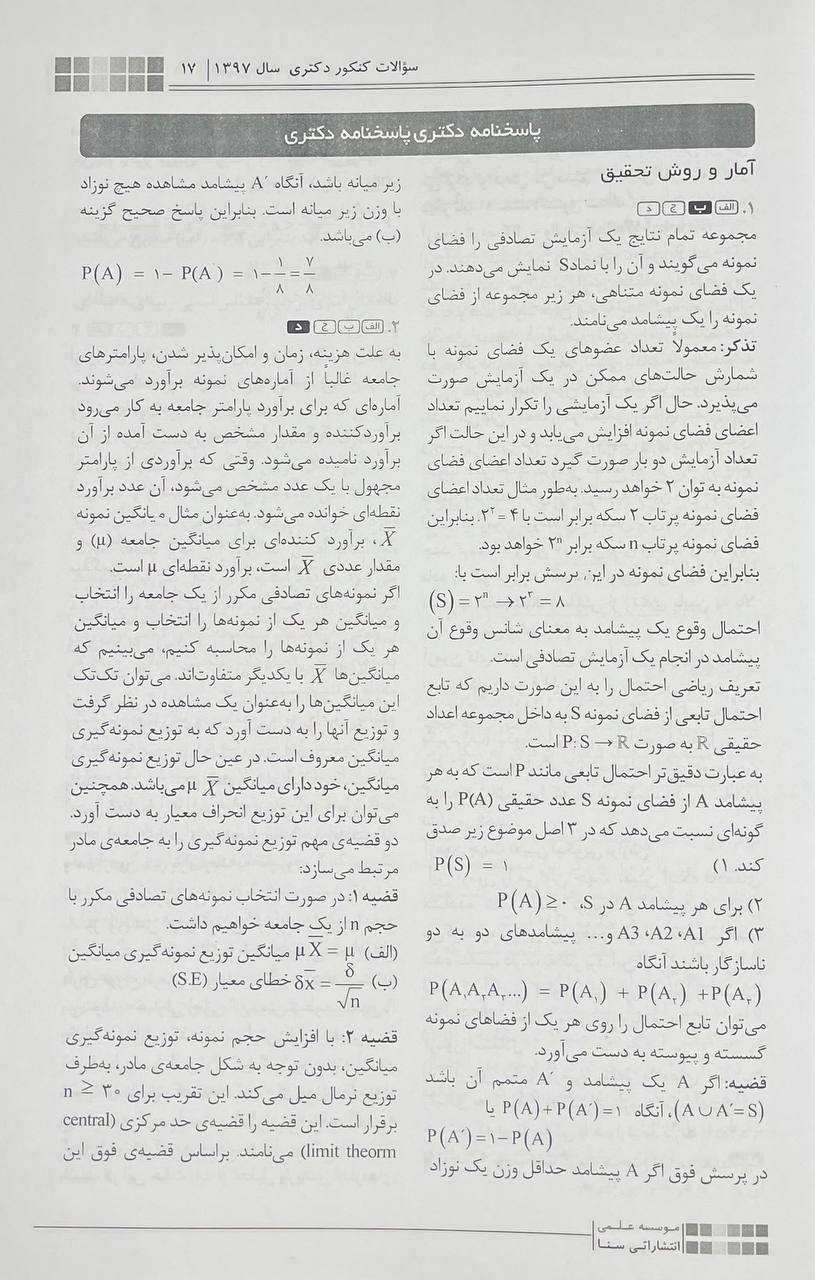 سؤالات کنکور دکتری سال ۱۳۹۷ | ۱۷
پاسخنامه دکتری پاسخنامه دکتری
آمار و روش تحقیق
۱. الف ب ج د
مجموعه تمام نتایج یک آزمایش تصادفی را فضای
نمونه می‌گویند و آن را با نماد S نمایش می‌دهند. در
یک فضای نمونه متناهی، هر زیر مجموعه از فضای
نمونه را یک پیشامد می‌نامند.
تذکر: معمولاً تعداد عضوهای یک فضای نمونه با
شمارش حالت‌های ممکن در یک آزمایش صورت
می‌پذیرد. حال اگر یک آزمایشی را تکرار نماییم تعداد
اعضای فضای نمونه افزایش می‌یابد و در این حالت اگر
تعداد آزمایش دو بار صورت گیرد تعداد اعضای فضای
نمونه به توان ۲ خواهد رسید. به‌طور مثال تعداد اعضای
فضای نمونه پرتاب ۲ سکه برابر است با ۴ = ۲^۲. بنابراین
فضای نمونه پرتاب n سکه برابر ۲^n خواهد بود.
بنابراین فضای نمونه در این پرسش برابر است با:
(S) = ۲^n → ۲^۳ = ۸
احتمال وقوع یک پیشامد به معنای شانس وقوع آن
پیشامد در انجام یک آزمایش تصادفی است.
تعریف ریاضی احتمال را به این صورت داریم که تابع
احتمال تابعی از فضای نمونه S به داخل مجموعه اعداد
حقیقی ℝ به صورت P: S → ℝ است.
به عبارت دقیق‌تر احتمال تابعی مانند P است که به هر
پیشامد A از فضای نمونه S عدد حقیقی P(A) را به
گونه‌ای نسبت می‌دهد که در ۳ اصل موضوع زیر صدق
کند. ۱) P(S) = ۱
۲) برای هر پیشامد A در S، P(A) ≥ ۰
۳) اگر A1، A2، A3 و... پیشامدهای دو به دو
ناسازگار باشند آنگاه
P(A۱A۲A۳...) = P(A۱) + P(A۲) + P(A۳)
می‌توان تابع احتمال را روی هر یک از فضاهای نمونه
گسسته و پیوسته به دست می‌آورد.
قضیه: اگر A یک پیشامد و A´ متمم آن باشد
(A ∪ A´=S)، آنگاه P(A)+P(A´)=۱ یا
P(A´)=۱−P(A)
در پرسش فوق اگر A پیشامد حداقل وزن یک نوزاد
زیر میانه باشد، آنگاه A´ پیشامد مشاهده هیچ نوزاد
با وزن زیر میانه است. بنابراین پاسخ صحیح گزینه
(ب) می‌باشد.
P(A) = ۱− P(A ) = ۱− ۱/۸ = ۷/۸
۲. الف ب ج د
به علت هزینه، زمان و امکان‌پذیر شدن، پارامترهای
جامعه غالباً از آماره‌های نمونه برآورد می‌شوند.
آماره‌ای که برای برآورد پارامتر جامعه به کار می‌رود
برآوردکننده و مقدار مشخص به دست آمده از آن
برآورد نامیده می‌شود. وقتی که برآوردی از پارامتر
مجهول با یک عدد مشخص می‌شود، آن عدد برآورد
نقطه‌ای خوانده می‌شود. به‌عنوان مثال میانگین نمونه
X̅، برآورد کننده‌ای برای میانگین جامعه (μ) و
مقدار عددی X̅ است، برآورد نقطه‌ای μ است.
اگر نمونه‌های تصادفی مکرر از یک جامعه را انتخاب
و میانگین هر یک از نمونه‌ها را انتخاب و میانگین
هر یک از نمونه‌ها را محاسبه کنیم، می‌بینیم که
میانگین‌ها X̅ با یکدیگر متفاوت‌اند. می‌توان تک‌تک
این میانگین‌ها را به‌عنوان یک مشاهده در نظر گرفت
و توزیع آنها را به دست آورد که به توزیع نمونه‌گیری
میانگین معروف است. در عین حال توزیع نمونه‌گیری
میانگین، خود دارای میانگین μ X̅ می‌باشد. همچنین
می‌توان برای این توزیع انحراف معیار به دست آورد.
دو قضیه‌ی مهم توزیع نمونه‌گیری را به جامعه‌ی مادر
مرتبط می‌سازد:
قضیه ۱: در صورت انتخاب نمونه‌های تصادفی مکرر با
حجم n از یک جامعه خواهیم داشت.
(الف) μX̅ = μ میانگین توزیع نمونه‌گیری میانگین
(ب) δx̅ = δ/√n خطای معیار (S.E)
قضیه ۲: با افزایش حجم نمونه، توزیع نمونه‌گیری
میانگین، بدون توجه به شکل جامعه‌ی مادر، به‌طرف
توزیع نرمال میل می‌کند. این تقریب برای n ≥ ۳۰
برقرار است. این قضیه را قضیه‌ی حد مرکزی (central
limit theorm) می‌نامند. براساس قضیه‌ی فوق این
موسسه علمی
انتشاراتی سنا